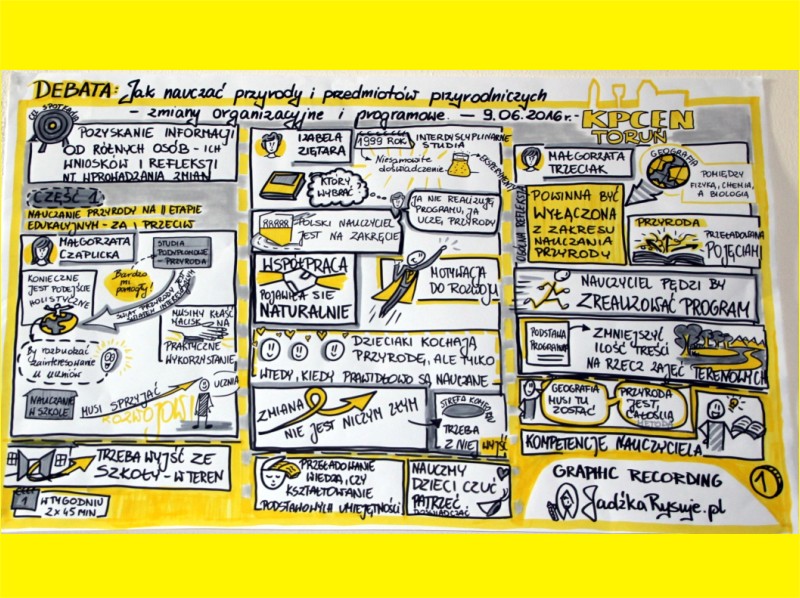 DEBATA: Jak nauczać przyrody i przedmiotów przyrodniczych
- zmiany organizacyjne i programowe. - 9.06.2016r.-
KPCEN
TORUŃ
CEL SPOTKANIA
POZYSKANIE INFORMACJI
OD RÓŻNYCH OSÓB - ICH
WNIOSKÓW I REFLEKSJI
NT WPROWADZANIA ZMIAN
CZĘŚĆ 1
NAUCZANIE PRZYRODY NA II ETAPIE
EDUKACYJNYM - ZA I PRZECIW
MAŁGORZATA
CZAPLICKA
STUDIA
PODYPLOMOWE
- PRZYRODA
Bardzo
mi
pomogły!
KONIECZNE
JEST PODEJŚCIE
HOLISTYCZNE
ŚWIAT PRZYRODY JEST
ŚWIATEM
MUSIMY KŁAŚĆ
NACISK
NA
PRAKTYCZNE
WYKORZYSTANIE
By rozbudzać
zainteresowanie
u uczniów
NAUCZANIE
W SZKOLE
MUSI SPRZYJAĆ
ROZWOJOWI
UCZNIA
TRZEBA WYJŚĆ ZE
SZKOŁY - W TEREN
1
W TYGODNIU
2 x 45 MIN
IZABELA
ZIĘTARA
1999 ROK
INTERDYSCYPLINARNE
STUDIA
Niesamowite
doświadczenie
EKSPERYMENTY
KTÓRY
WYBRAĆ?
JA NIE REALIZUJĘ
PROGRAMU, JA
UCZĘ PRZYRODY
POLSKI NAUCZYCIEL
JEST NA ZAKRĘCIE
WSPÓŁPRACA
POJAWIA SIĘ
NATURALNIE
MOTYWACJA
DO ROZWOJU
DZIECIAKI KOCHAJĄ
PRZYRODĘ, ALE TYLKO
WTEDY, KIEDY PRAWIDŁOWO SĄ NAUCZANE
ZMIANA
NIE JEST NICZYM ZŁYM
STREFA KOMFORTU
TRZEBA
Z NIEJ WYJŚĆ
PRZEŁADOWANIE
WIEDZĄ, CZY
KSZTAŁTOWANIE
PODSTAWOWYCH UMIEJĘTNOŚCI
NAUCZMY
DZIECI CZUĆ
PATRZEĆ
DOŚWIADCZAĆ
MAŁGORZATA
TRZECIAK
GEOGRAFIA
POMIĘDZY
FIZYKĄ, CHEMIĄ,
A BIOLOGIĄ
OGÓLNA REFLEKSJA
POWINNA BYĆ
WYŁĄCZONA
Z ZAKRESU
NAUCZANIA
PRZYRODY
PRZYRODA
PRZEŁADOWANA
POJĘCIAMI
NAUCZYCIEL PĘDZI BY
ZREALIZOWAĆ PROGRAM
PODSTAWA
PROGRAMOWA
ZMNIEJSZYĆ
ILOŚĆ TREŚCI
NA RZECZ ZAJĘĆ TERENOWYCH
GEOGRAFIA
MUSI TU
ZOSTAĆ
PRZYRODA
JEST
CAŁOŚCIĄ
KOMPETENCJE NAUCZYCIELA
GRAPHIC RECORDING
JadźkaRysuje.pl
1